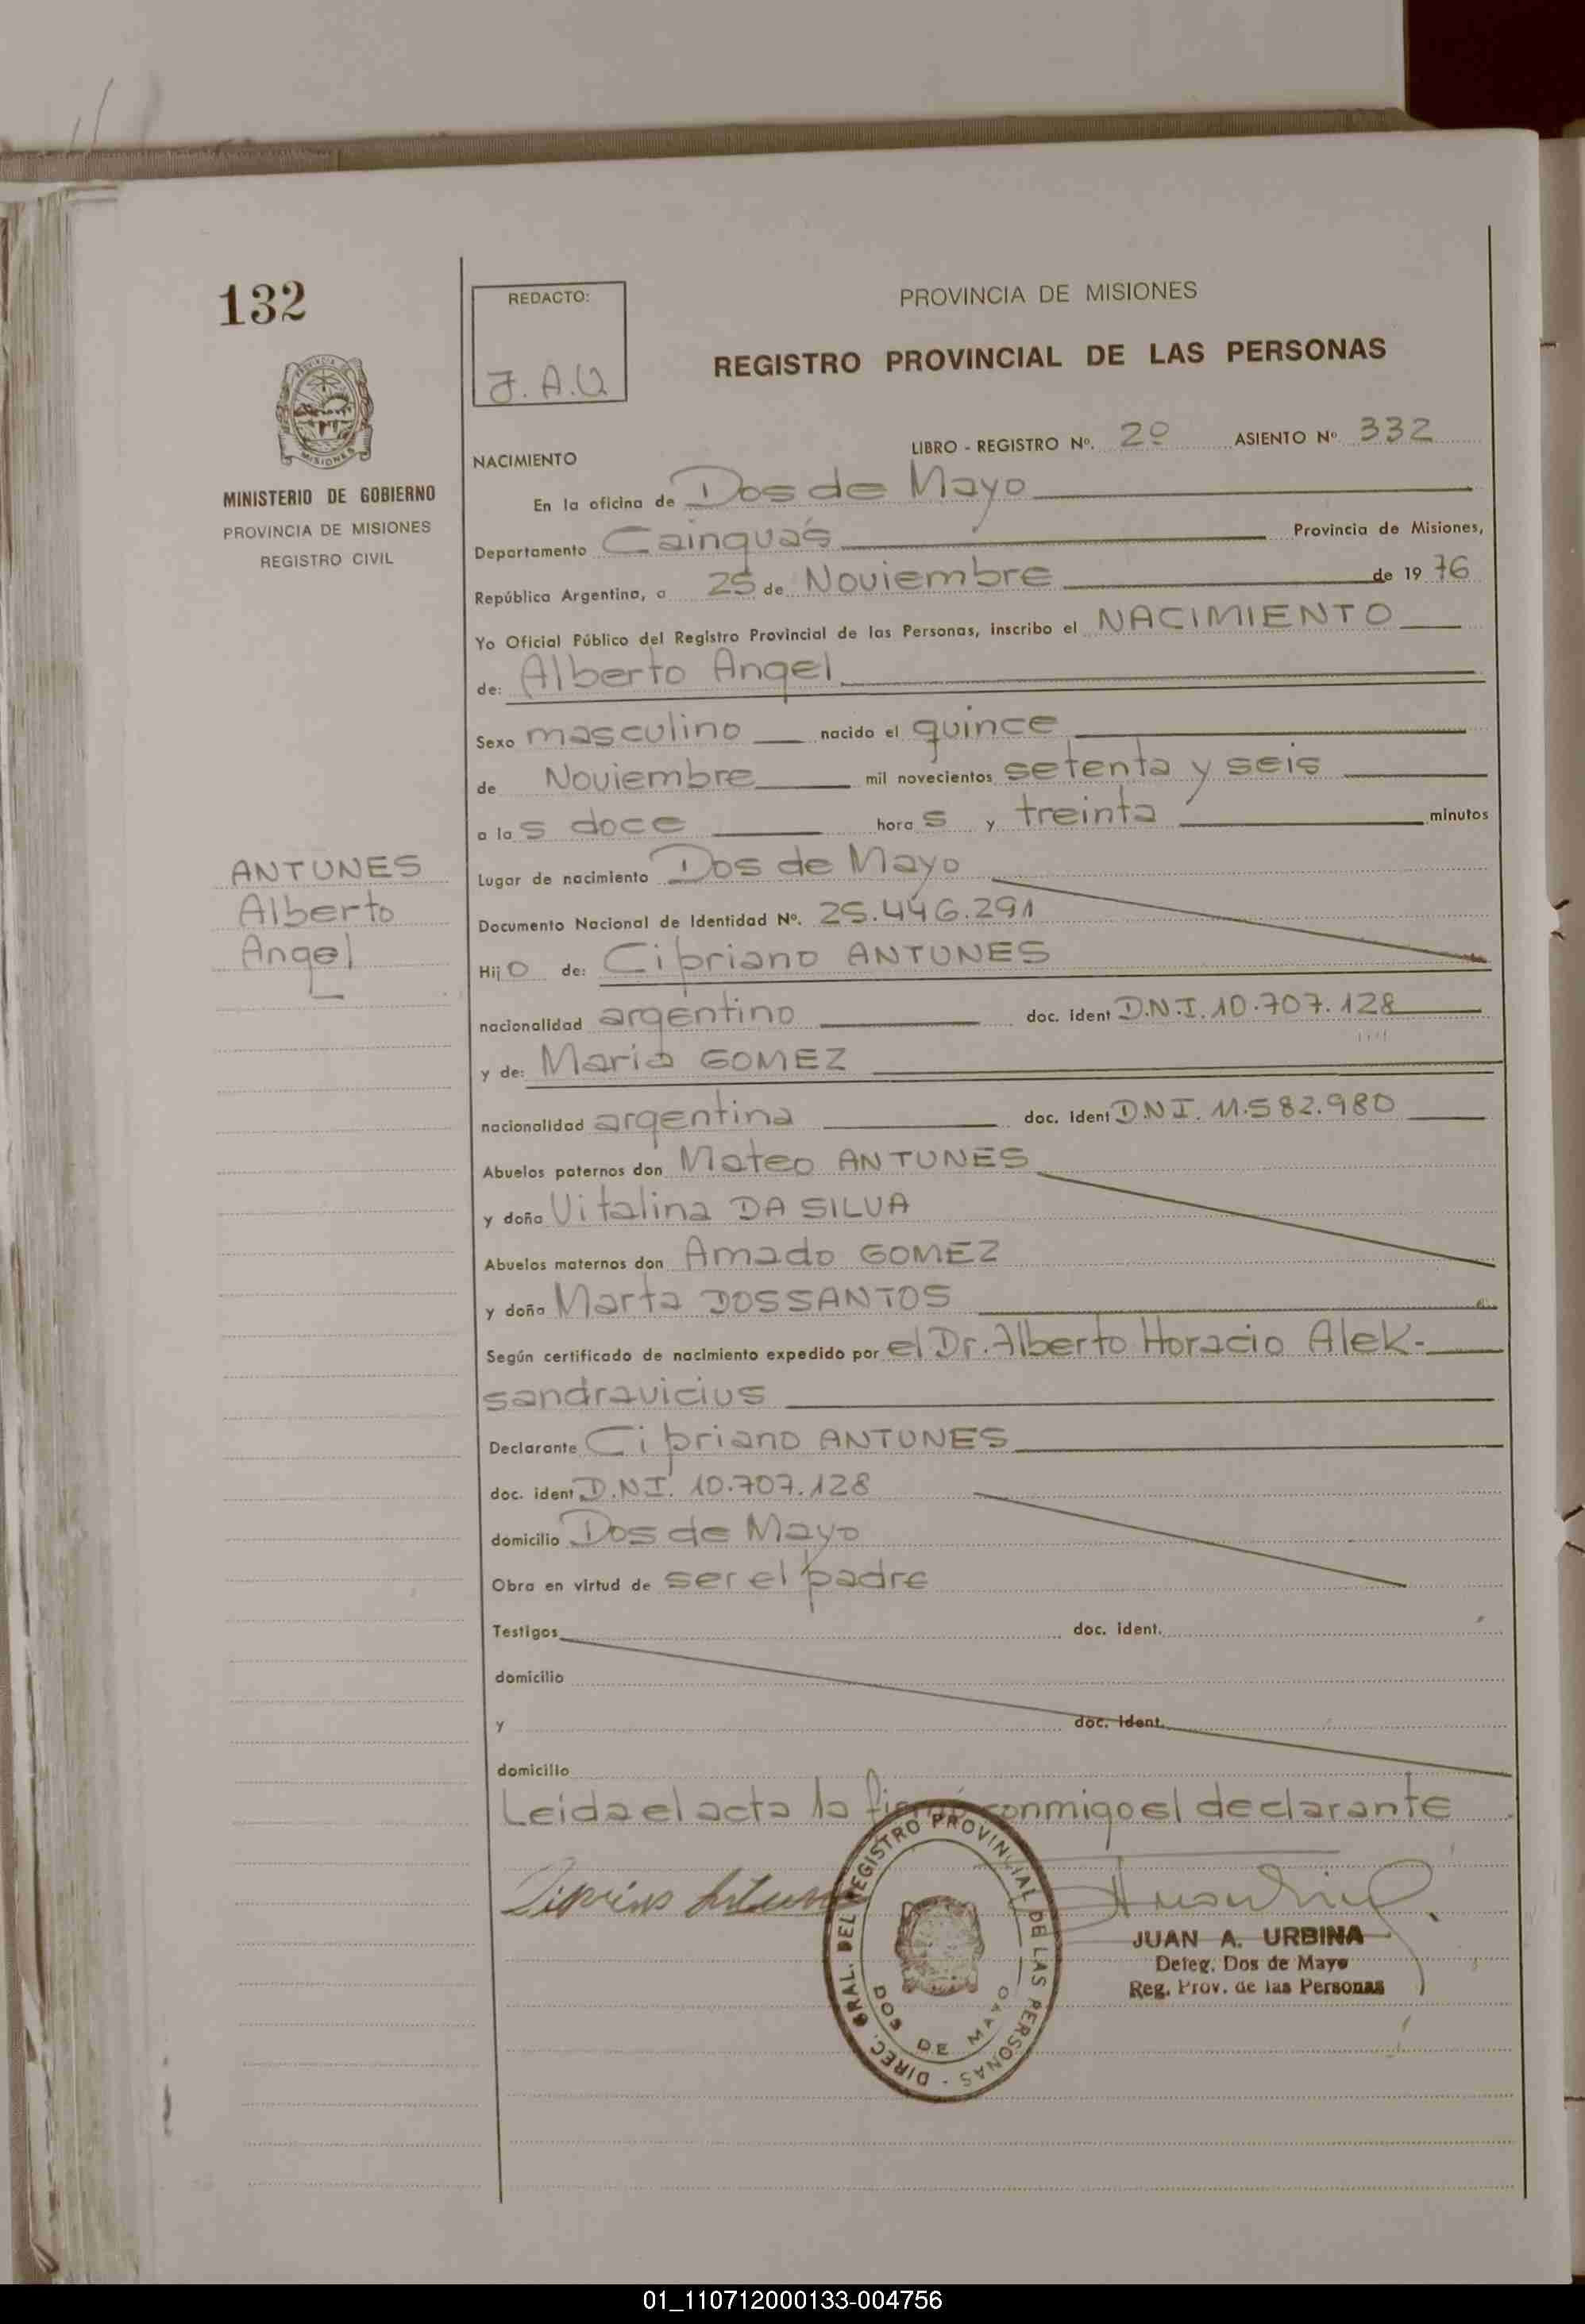 132
REDACTO:
J.A.U
PROVINCIA DE MISIONES
REGISTRO PROVINCIAL DE LAS PERSONAS
MINISTERIO DE GOBIERNO
PROVINCIA DE MISIONES
REGISTRO CIVIL
MISIONES
NACIMIENTO
LIBRO - REGISTRO Nº. 2º ASIENTO Nº 332
En la oficina de Dos de Mayo
Departamento Cainguás Provincia de Misiones,
República Argentina, a 25 de Noviembre de 1976
Yo Oficial Público del Registro Provincial de las Personas, inscribo el NACIMIENTO
de: Alberto Angel
Sexo masculino nacido el quince
de Noviembre mil novecientos setenta y seis
a las doce horas y treinta minutos
ANTUNES
Alberto
Angel
Lugar de nacimiento Dos de Mayo
Documento Nacional de Identidad Nº. 25.446.291
Hijo de: Cipriano ANTUNES
nacionalidad argentino doc. ident D.N.I. 10.707.128
y de: María GOMEZ
nacionalidad argentina doc. ident D.N.I. 11.582.980
Abuelos paternos don Mateo ANTUNES
y doña Vitalina DA SILVA
Abuelos maternos don Amado GOMEZ
y doña Marta DOSSANTOS
Según certificado de nacimiento expedido por el Dr. Alberto Horacio Alek-
sandravicius
Declarante Cipriano ANTUNES
doc. ident D.N.I. 10.707.128
domicilio Dos de Mayo
Obra en virtud de ser el padre
Testigos doc. ident.
domicilio
y doc. ident.
domicilio
Leida el acta la firmó conmigo el declarante
DIREC. GRAL. DEL REGISTRO PROVINCIAL DE LAS PERSONAS -
DOS DE MAYO
JUAN A. URBINA
Deleg. Dos de Mayo
Reg. Prov. de las Personas
01_110712000133-004756